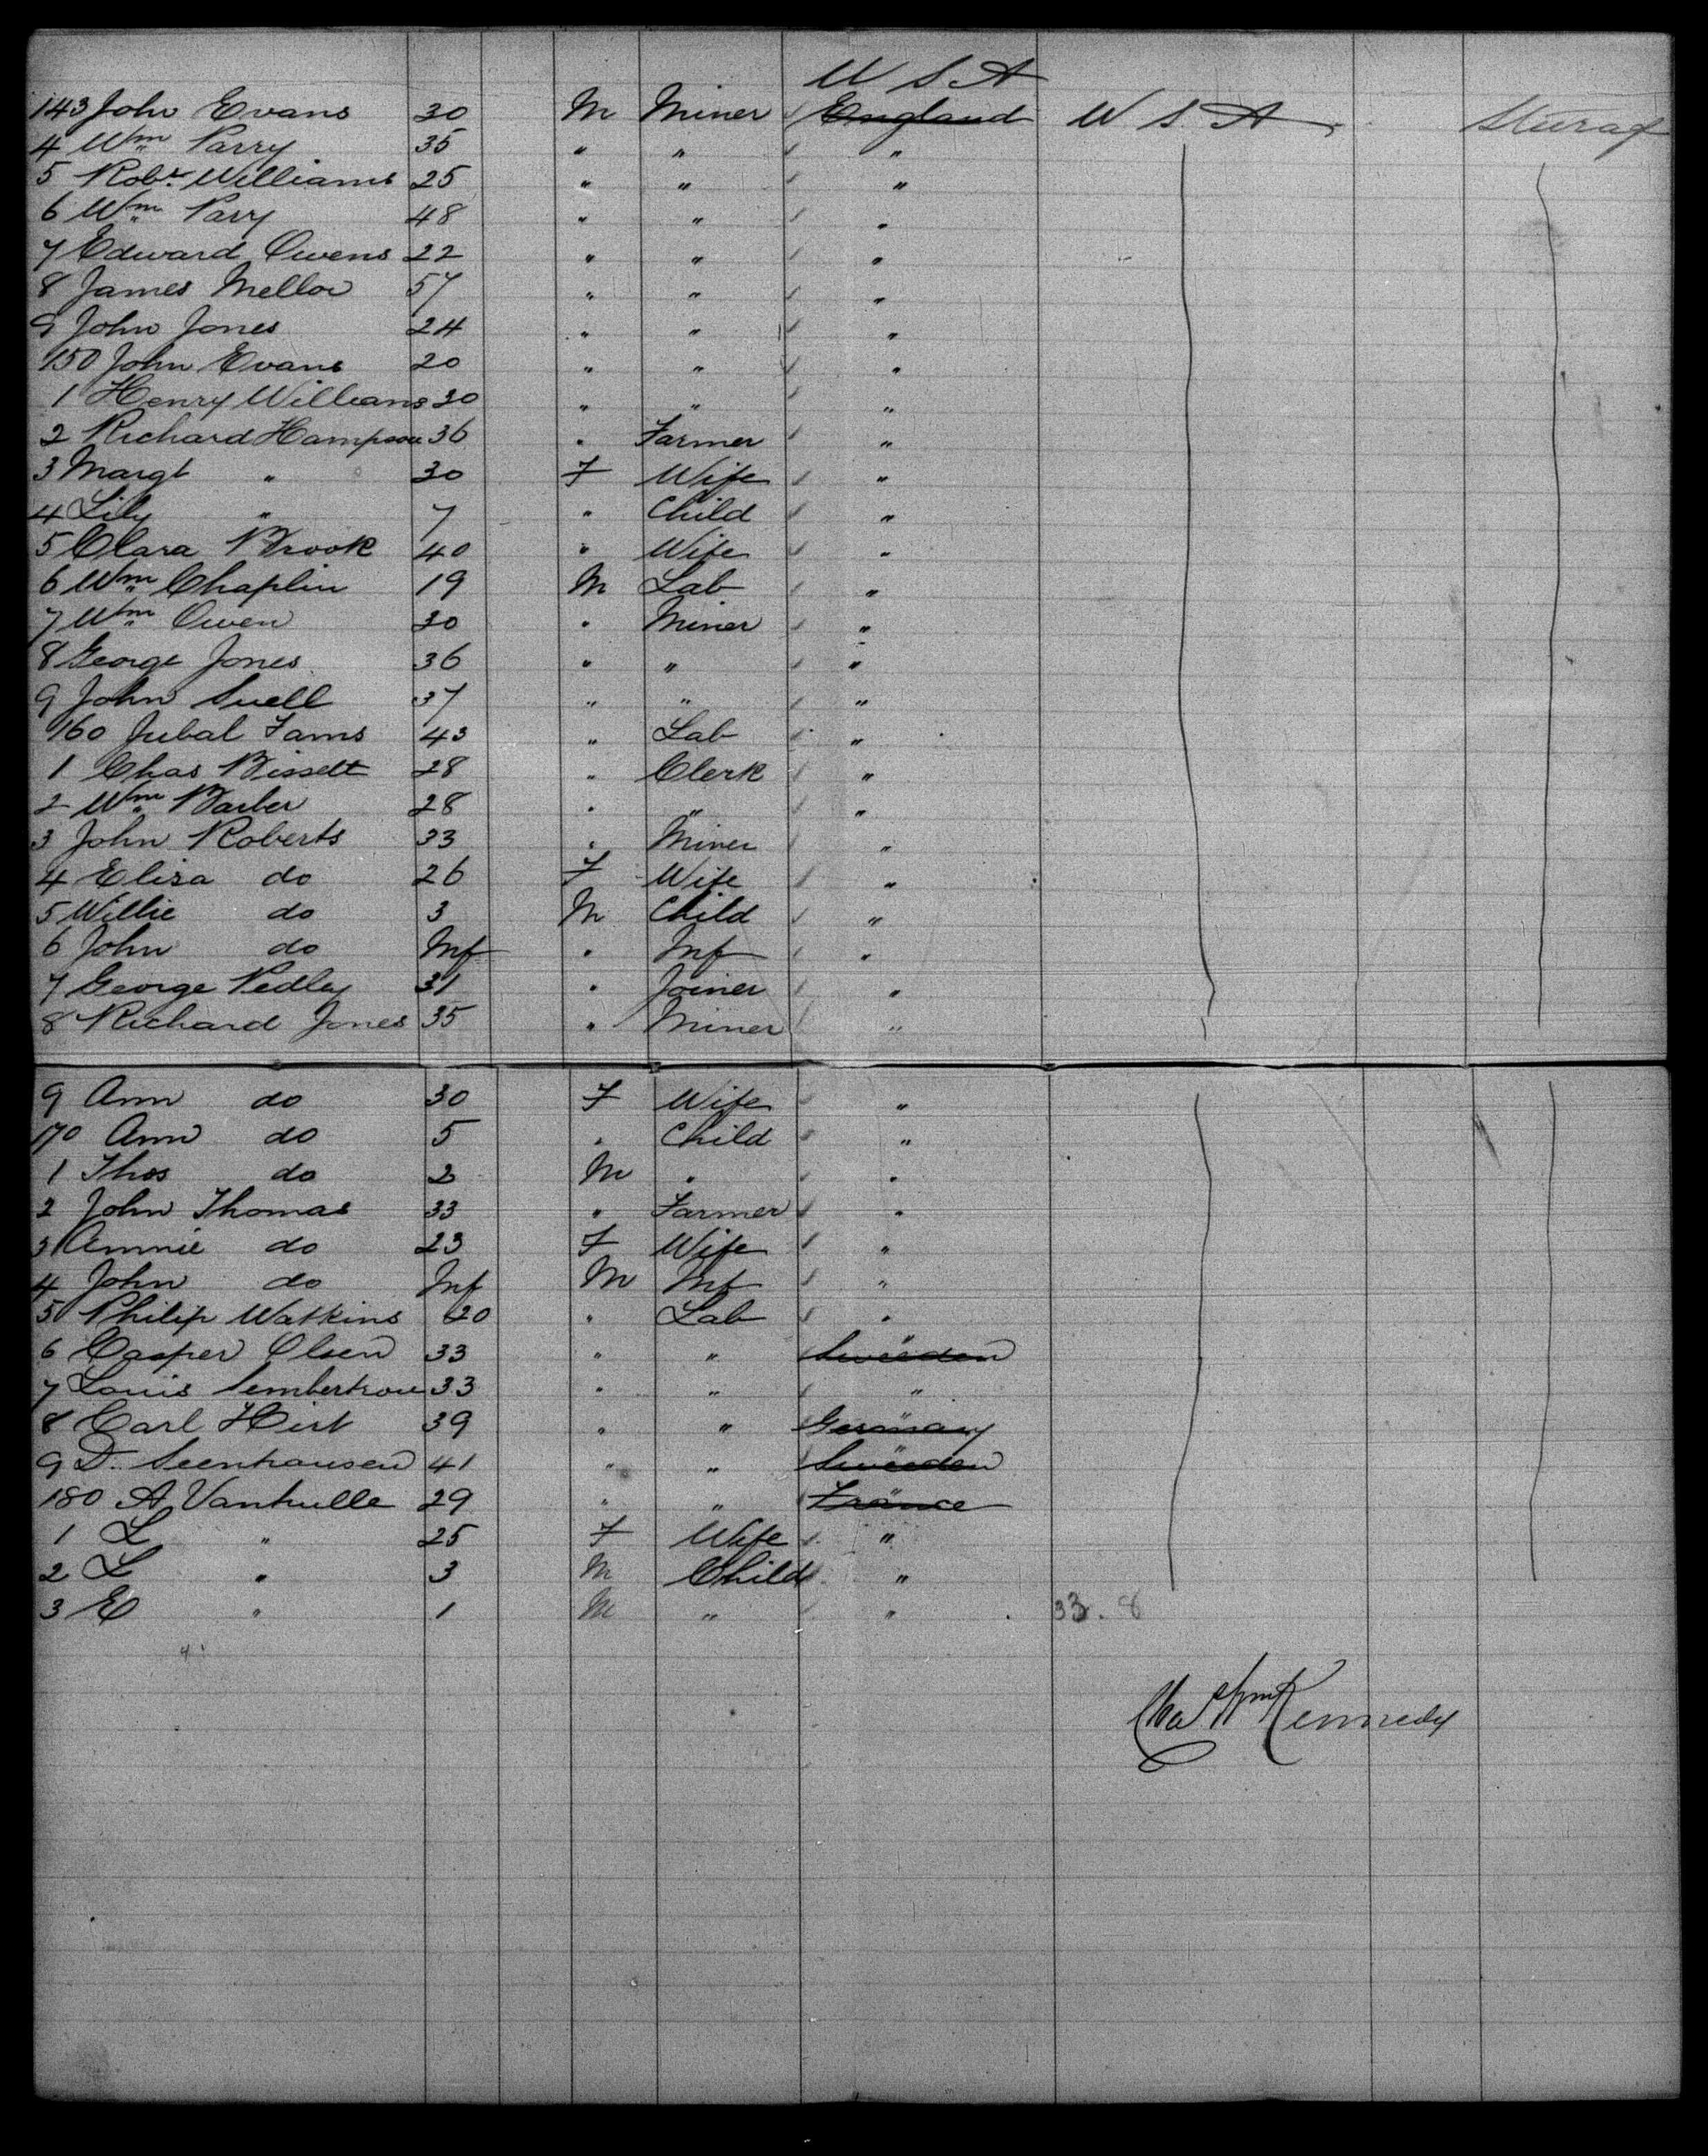 U S A
143 John Evans 30 M Miner England U S A
4 Wm Parry 35 " " "
5 Robt Williams 25 " " "
6 Wm Parry 48 " " "
7 Edward Owens 22 " " "
8 James Mellor 57 " " "
9 John Jones 24 " " "
150 John Evans 20 " " "
1 Henry Williams 20 " " "
2 Richard Hampson 36 " Farmer "
3 Margt " 30 F Wife "
4 Lily " 7 " Child "
5 Clara Brook 40 " Wife "
6 Wm Chaplin 19 M Lab "
7 Wm Owen 30 " Miner "
8 George Jones 36 " " "
9 John Snell 37 " " "
160 Jubal Fams 43 " Lab "
1 Chas Bissett 28 " Clerk "
2 Wm Barber 28 " " "
3 John Roberts 33 " Miner "
4 Eliza do 26 F Wife "
5 Willie do 3 M Child "
6 John do Inf " Inf "
7 George Pedley 31 " Joiner "
8 Richard Jones 35 " Miner "
9 Ann do 30 F Wife "
170 Ann do 5 " Child "
1 Thos do 2 M " "
2 John Thomas 33 " Farmer "
3 Annie do 23 F Wife "
4 John do Inf M Inf "
5 Philip Watkins 20 " Lab "
6 Casper Olsen 33 " " Sweden
7 Louis 33 " " "
8 Carl Hirt 39 " " Germany
9 D. Seenhausen 41 " " Sweden
180 A Vanhulle 29 " " France
1 L " 25 F Wife "
2 L " 3 M Child "
3 E " 1 M " " 33. 8
Kennedy